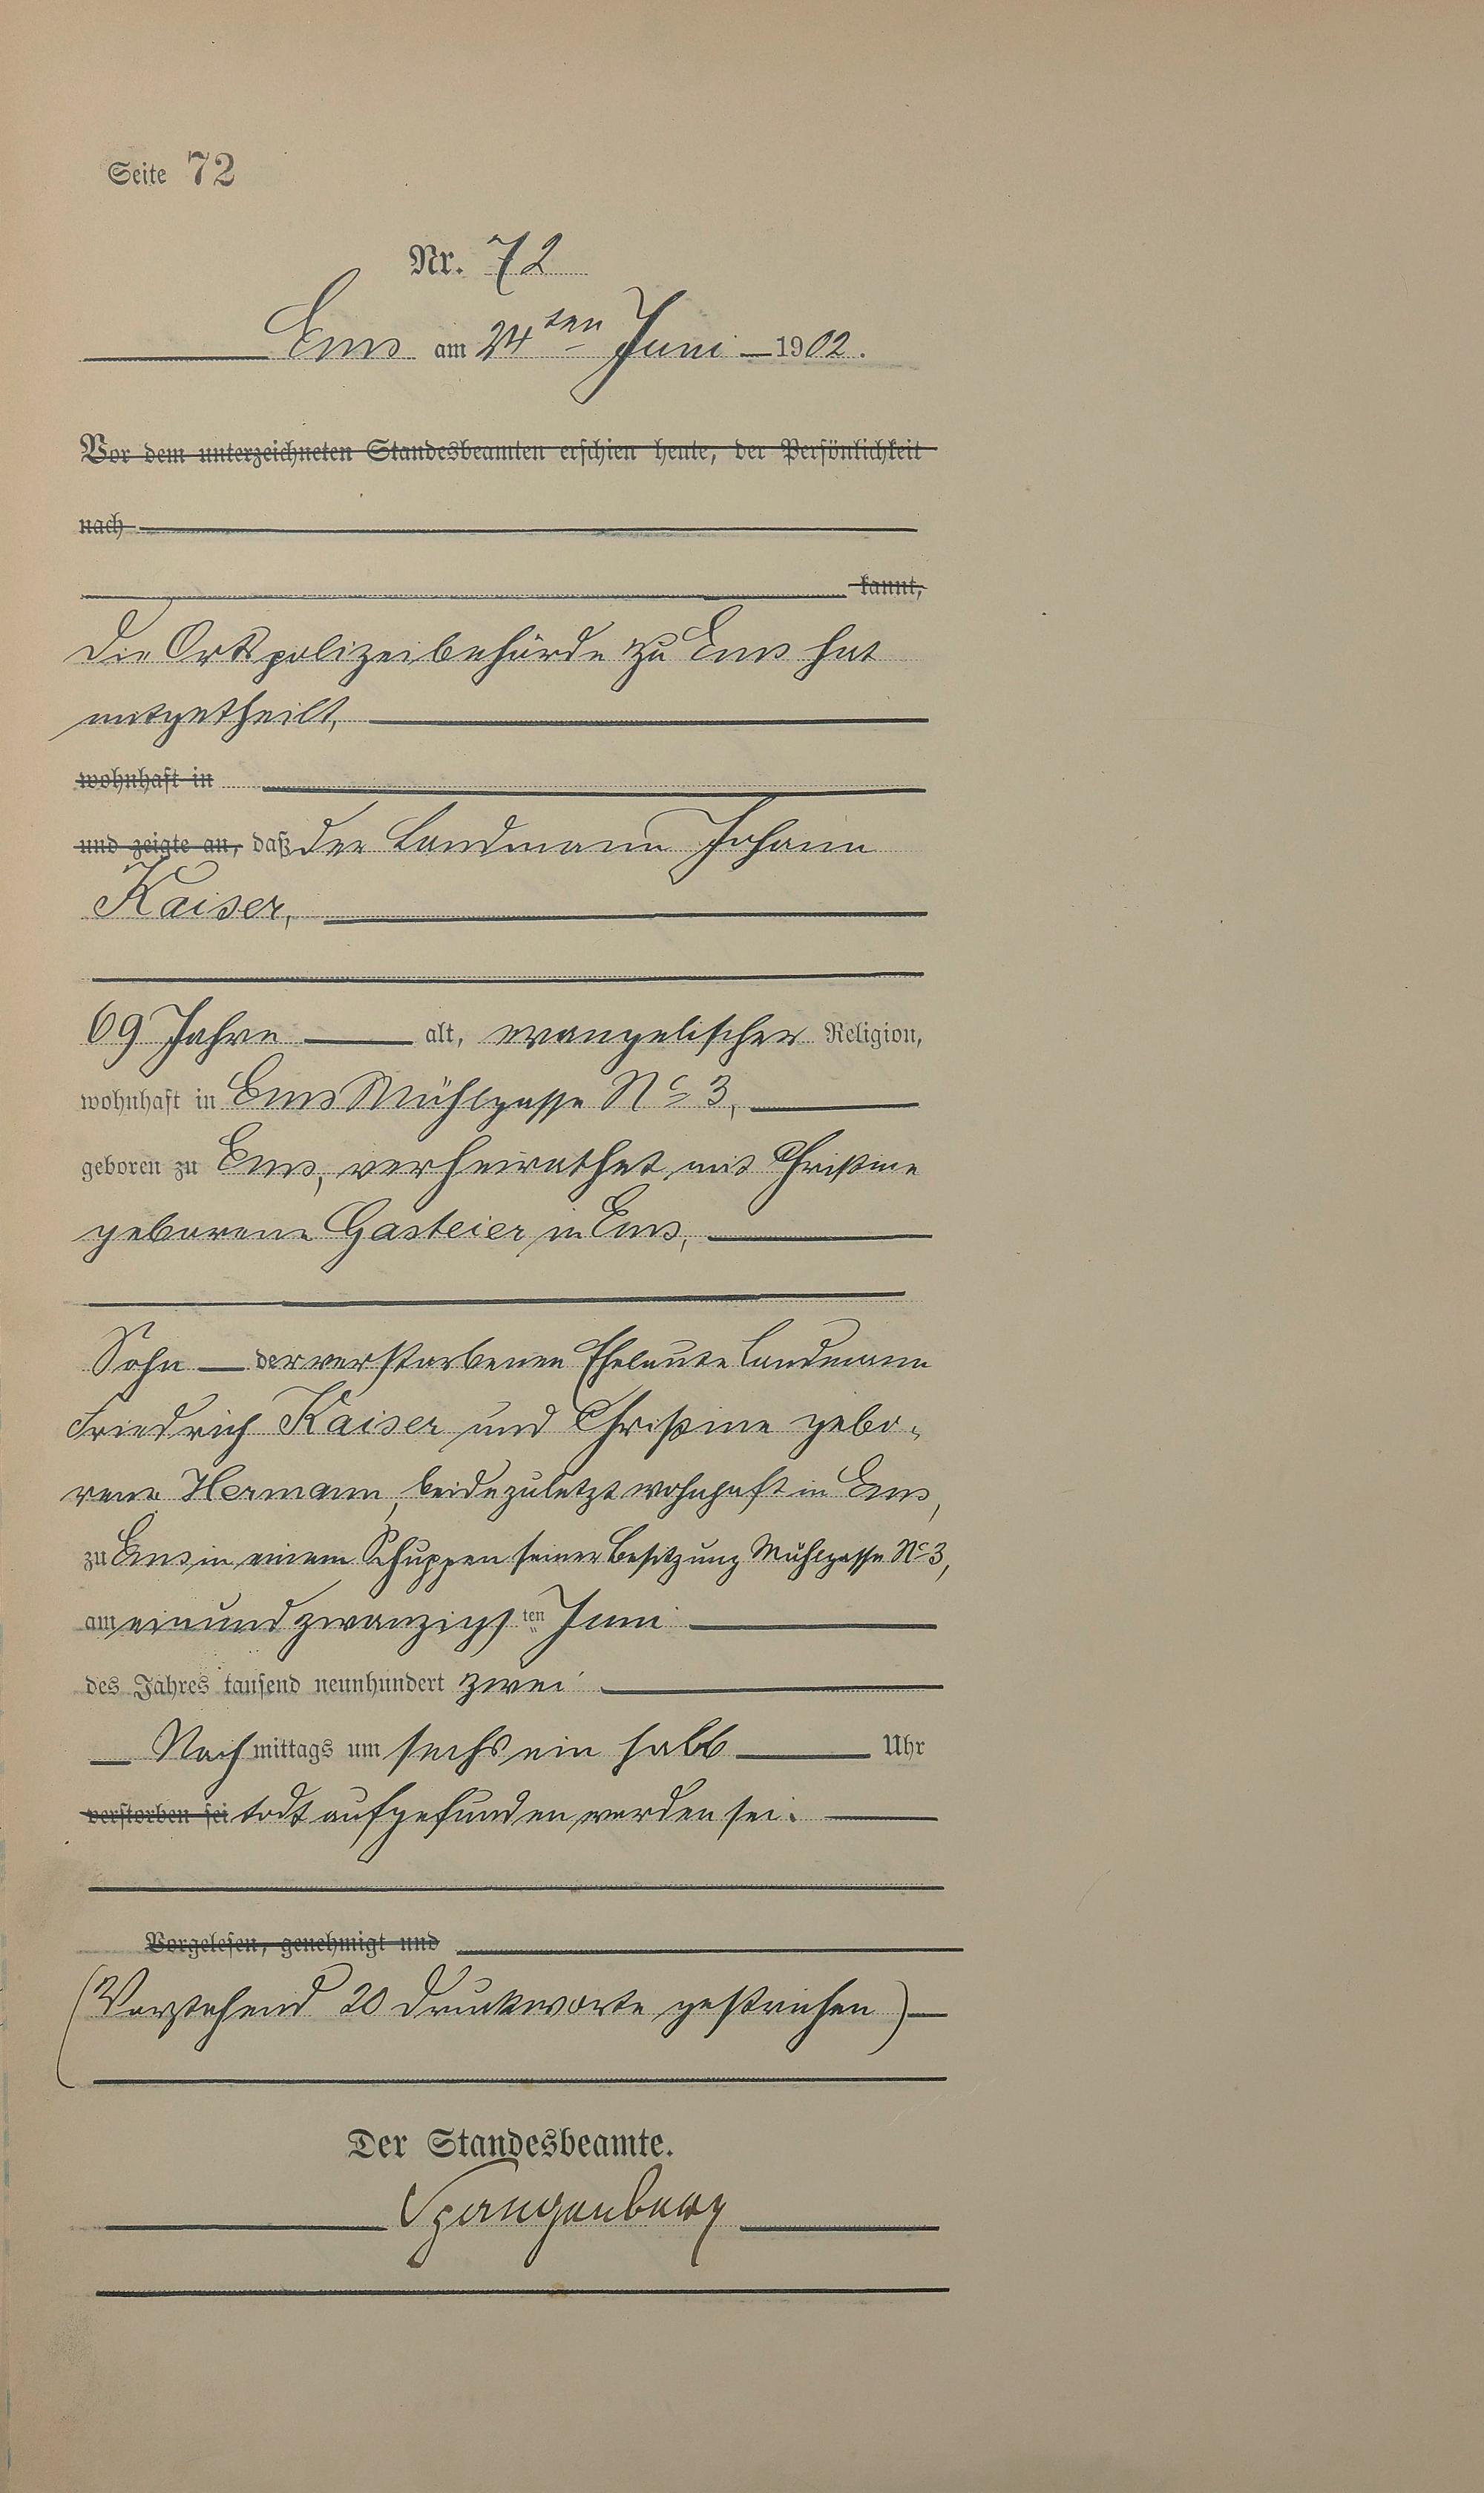 Seite 72
Nr. 72
Ems am 24ten Juni 1902.
Vor dem unterzeichneten Standesbeamten erschien heute, der Persönlichkeit
nach
kannt,
Die Ortspolizeibehörde zu Ems hat
mitgetheilt,
wohnhaft in
und zeigte an, daß der Landmann Johann
Kaiser,
69 Jahre alt, evangelischer Religion,
wohnhaft in Ems Mühlgasse No 3,
geboren zu Ems, verheirathet mit Christine
geborene Gasteier in Ems,
Sohn der verstorbenen Eheleute Landmann
Friedrich Kaiser und Christine gebo-
rene Hermann, beide zuletzt wohnhaft in Ems,
zu Ems in einem Schuppen seiner Besitzung Mühlgasse No 3,
am einundzwanzigsten Juni
des Jahres tausend neunhundert zwei
Nachmittags um sechs ein halb Uhr
verstorben sei todt aufgefunden worden sei.
Vorgelesen, genehmigt und
(Vorstehend 20 Druckworte gestrichen)
Der Standesbeamte.
Spangenberg